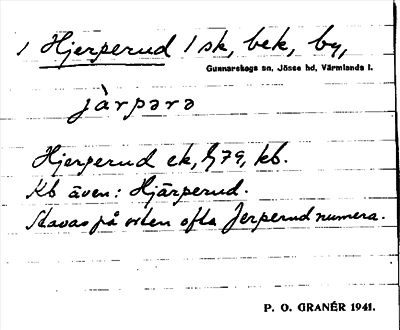 1 Hjerperud 1 sk, bek, by,
Gunnarskogs sn, Jösse hd, Värmlands l.
jàrpərə
Hjerperud ek, 779, kb.
Kb även: Hjärperud.
Stavas på orten ofta Jerperud numera.
P. O. GRANÉR 1941.